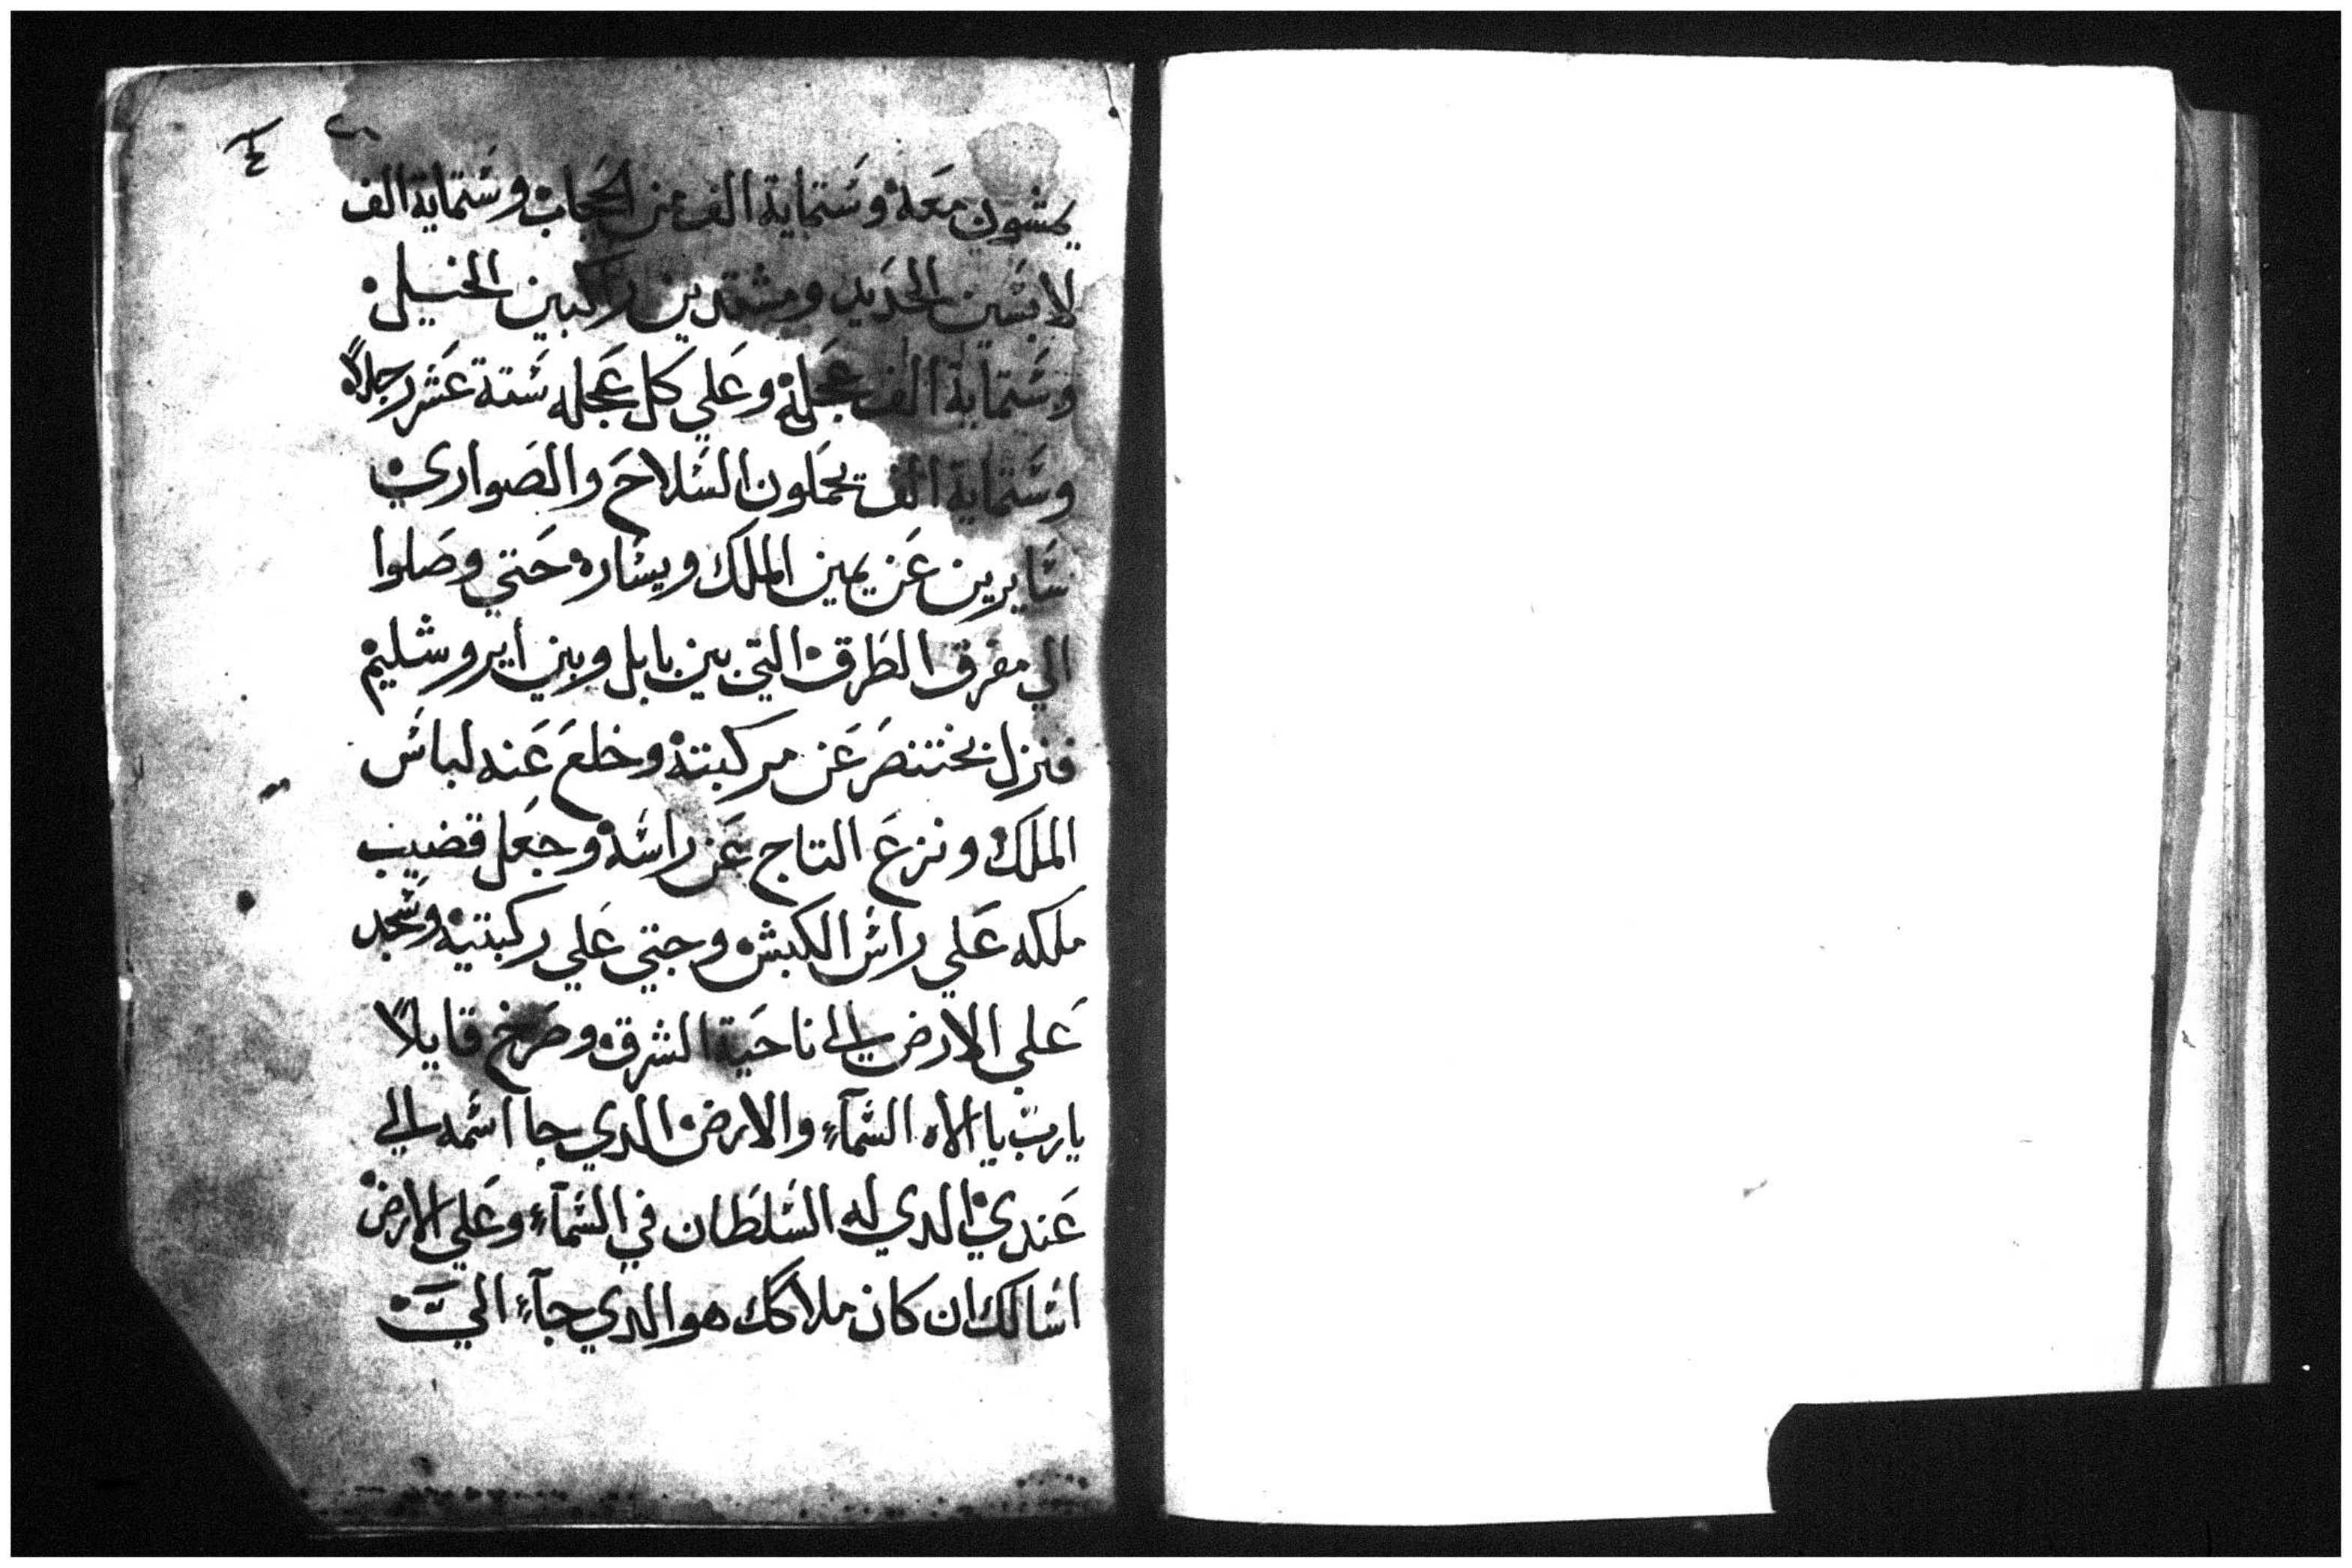 يمشون معَه وسَتماية الف من الحجاب وستماية الف
لابسَين الحدَيد ومشتدين راكبين الخيل
وسَتماية الف عجَله وعَلي كل عَجله سَتة عَشر رجلاً
وسَتماية الف يحمَلون السَلاحَ والصَواري
سَايرين عَن يمين الملك ويسَاره حَتي وصَلوا
الي مفرق الطَرق التي بين بابل وبين أيروشليم
فنزل بختنصَر عَن مركبته وخلعَ عَنه لباسَ
الملك ونزعَ التاج عَن راسَه وجعَل قضيب
ملكه عَلي راسَ الكبش وجتي عَلي ركبتيه وسَجد
عَلي الارض الي ناحيَة الشرق وصَرخ قايلاً
يارب يا الاه السَمآء والارض الدي جا اسَمه الي
عَندي الدي له السَلطَان في السَمآء وعَلي الارض
اسَالك ان كان ملاكك هو الدي جآء اليَّ